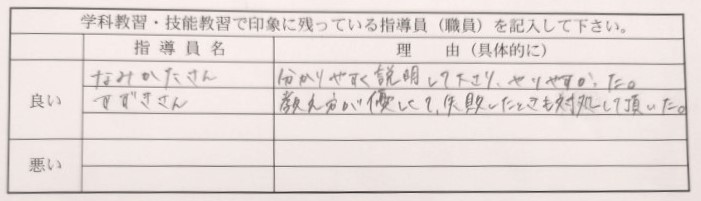 学科教習・技能教習で印象に残っている指導員（職員）を記入して下さい。
指導員名 理由（具体的に）
良い なみかたさん 分かりやすく説明して下さり、やりやすかった。
すずきさん 教え方が優しくて、失敗したときも対処して頂いた。
悪い